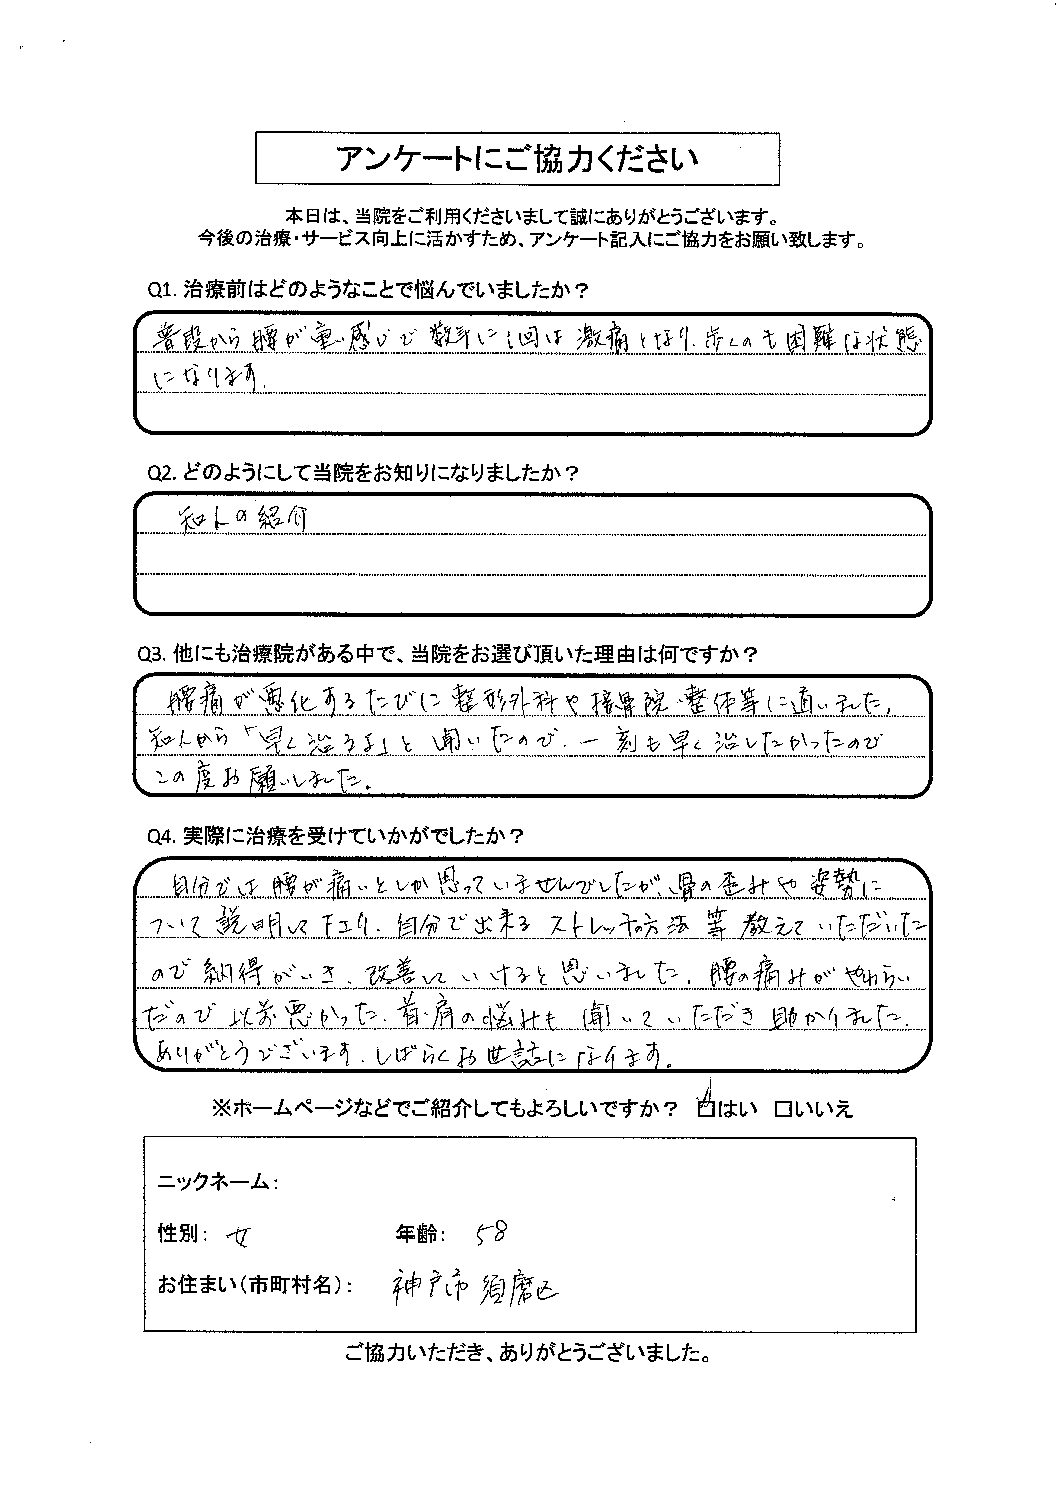 アンケートにご協力ください
本日は、当院をご利用くださいまして誠にありがとうございます。
今後の治療・サービス向上に活かすため、アンケート記入にご協力をお願い致します。
Q1. 治療前はどのようなことで悩んでいましたか？
普段から腰が重い感じで数年に1回は激痛となり、歩くのも困難な状態
になります。
Q2. どのようにして当院をお知りになりましたか？
知人の紹介
Q3. 他にも治療院がある中で、当院をお選び頂いた理由は何ですか？
腰痛が悪化するたびに整形外科や接骨院・整体等に通いました。
知人から「早く治るよ」と聞いたので、一刻も早く治したかったので
この度お願いしました。
Q4. 実際に治療を受けていかがでしたか？
自分では腰が痛いとしか思っていませんでしたが、骨の歪みや姿勢に
ついて説明して下さり、自分で出来るストレッチの方法等教えていただいた
ので納得がいき、改善していけると思いました。腰の痛みがやわらい
だので以前悪かった、首・肩の悩みも聞いていただき助かりました。
ありがとうございます。しばらくお世話になります。
※ホームページなどでご紹介してもよろしいですか？ ☑はい □いいえ
ニックネーム：
性別： 女 年齢： 58
お住まい（市町村名）： 神戸市須磨区
ご協力いただき、ありがとうございました。